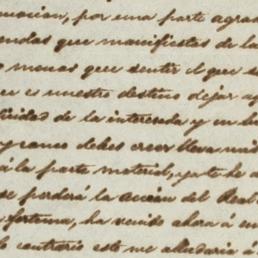 nuacion, por una parte agrad
endas que manifiestas de la
o menos que sentir el que s
que es nuestro destino dejar
cidad de la interesada y un
debes creer lleva
á la parte material, ya te
se perderá la accion del Real
fortuna, ha venido ahora á
lo contrario esto me